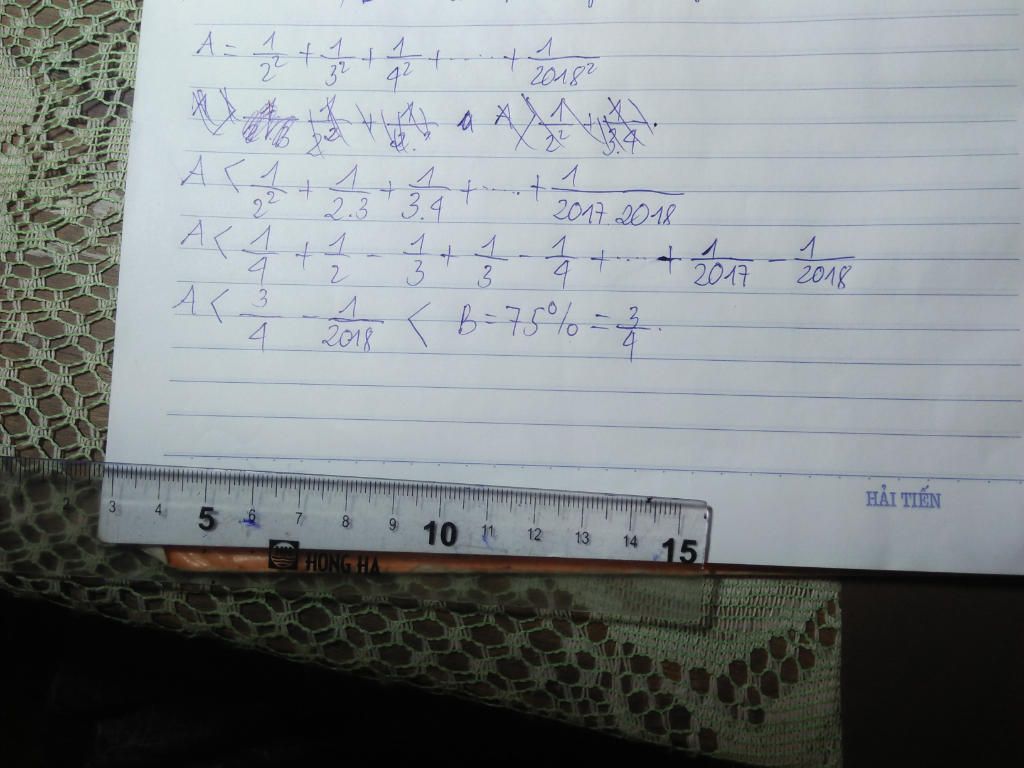 A = 1/2² + 1/3² + 1/4² + ..... + 1/2018²
A > 1/2² + 1/3.4.
A < 1/2² + 1/2.3 + 1/3.4 + ..... + 1/2017.2018
A < 1/4 + 1/2 - 1/3 + 1/3 - 1/4 + ..... + 1/2017 - 1/2018
A < 3/4 - 1/2018 < B = 75% = 3/4.
HẢI TIẾN
2 3 4 5 6 7 8 9 10 11 12 13 14 15
HONG HA